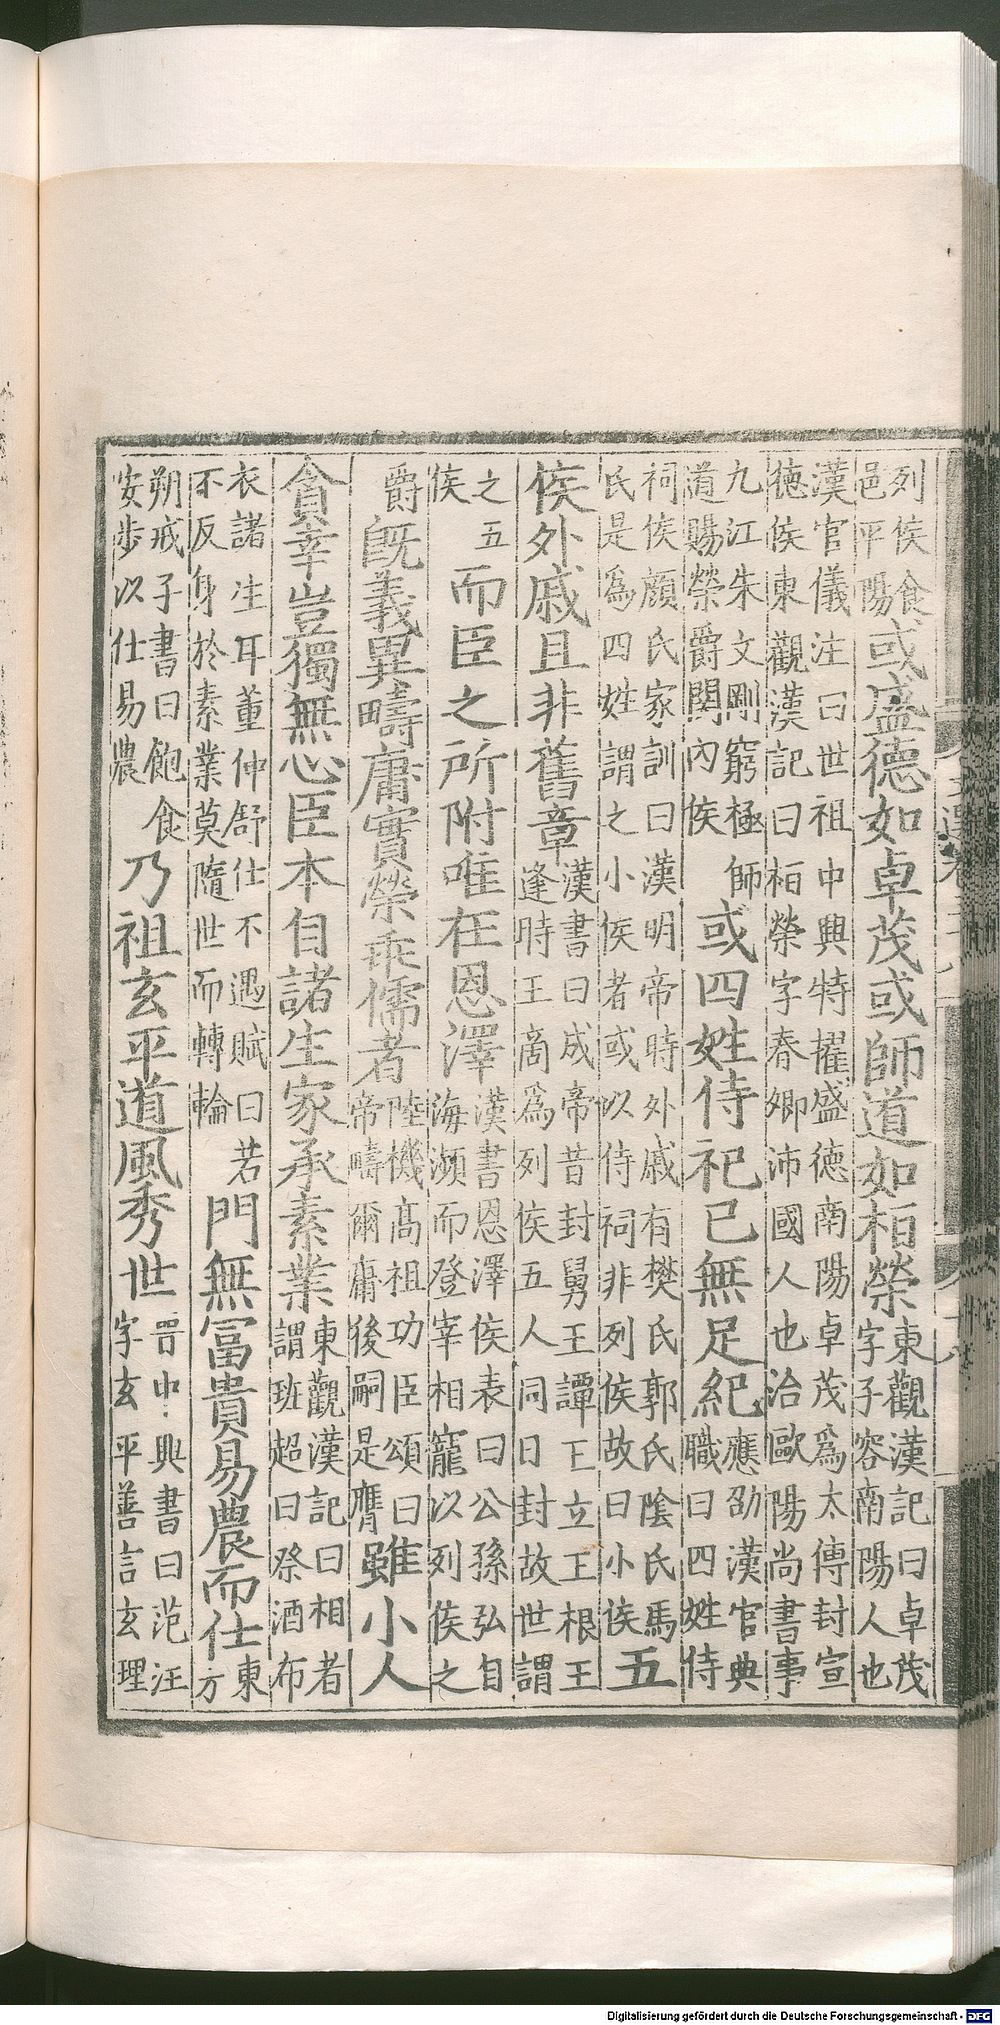 列侯食邑平陽或盛德如卓茂或師道如栢榮東觀漢記曰卓茂字子容南陽人也
漢官儀注曰世祖中興特擢盛德南陽卓茂爲太傅封宣德侯東觀漢記曰栢榮字春卿沛國人也治歐陽尚書事
九江朱文剛窮極師道賜榮爵關內侯或四姓侍祀已無足紀應劭漢官典職曰四姓侍
祠侯顔氏家訓曰漢明帝時外戚有樊氏郭氏陰氏馬氏是爲四姓謂之小侯者或以侍祠非列侯故曰小侯五
侯外戚且非舊章漢書曰成帝昔封舅王譚王立王根王逢時王啇爲列侯五人同日封故世謂
之五侯而臣之所附唯在恩澤漢書恩澤侯表曰公孫弘自海瀕而登宰相寵以列侯之
爵旣義異疇庸實榮乖儒者陸機高祖功臣頌曰帝疇爾庸後嗣是膺雖小人
貪幸豈獨無心臣本自諸生家承素業東觀漢記曰相者謂班超曰祭酒布
衣諸生耳董仲舒仕不遇賦曰若不反身於素業莫隨世而轉輪門無冨貴易農而仕東方
朔戒子書曰飽食安步以仕易農乃祖玄平道風秀世晉中興書曰范汪字玄平善言玄理
Digitalisierung gefördert durch die Deutsche Forschungsgemeinschaft - DFG